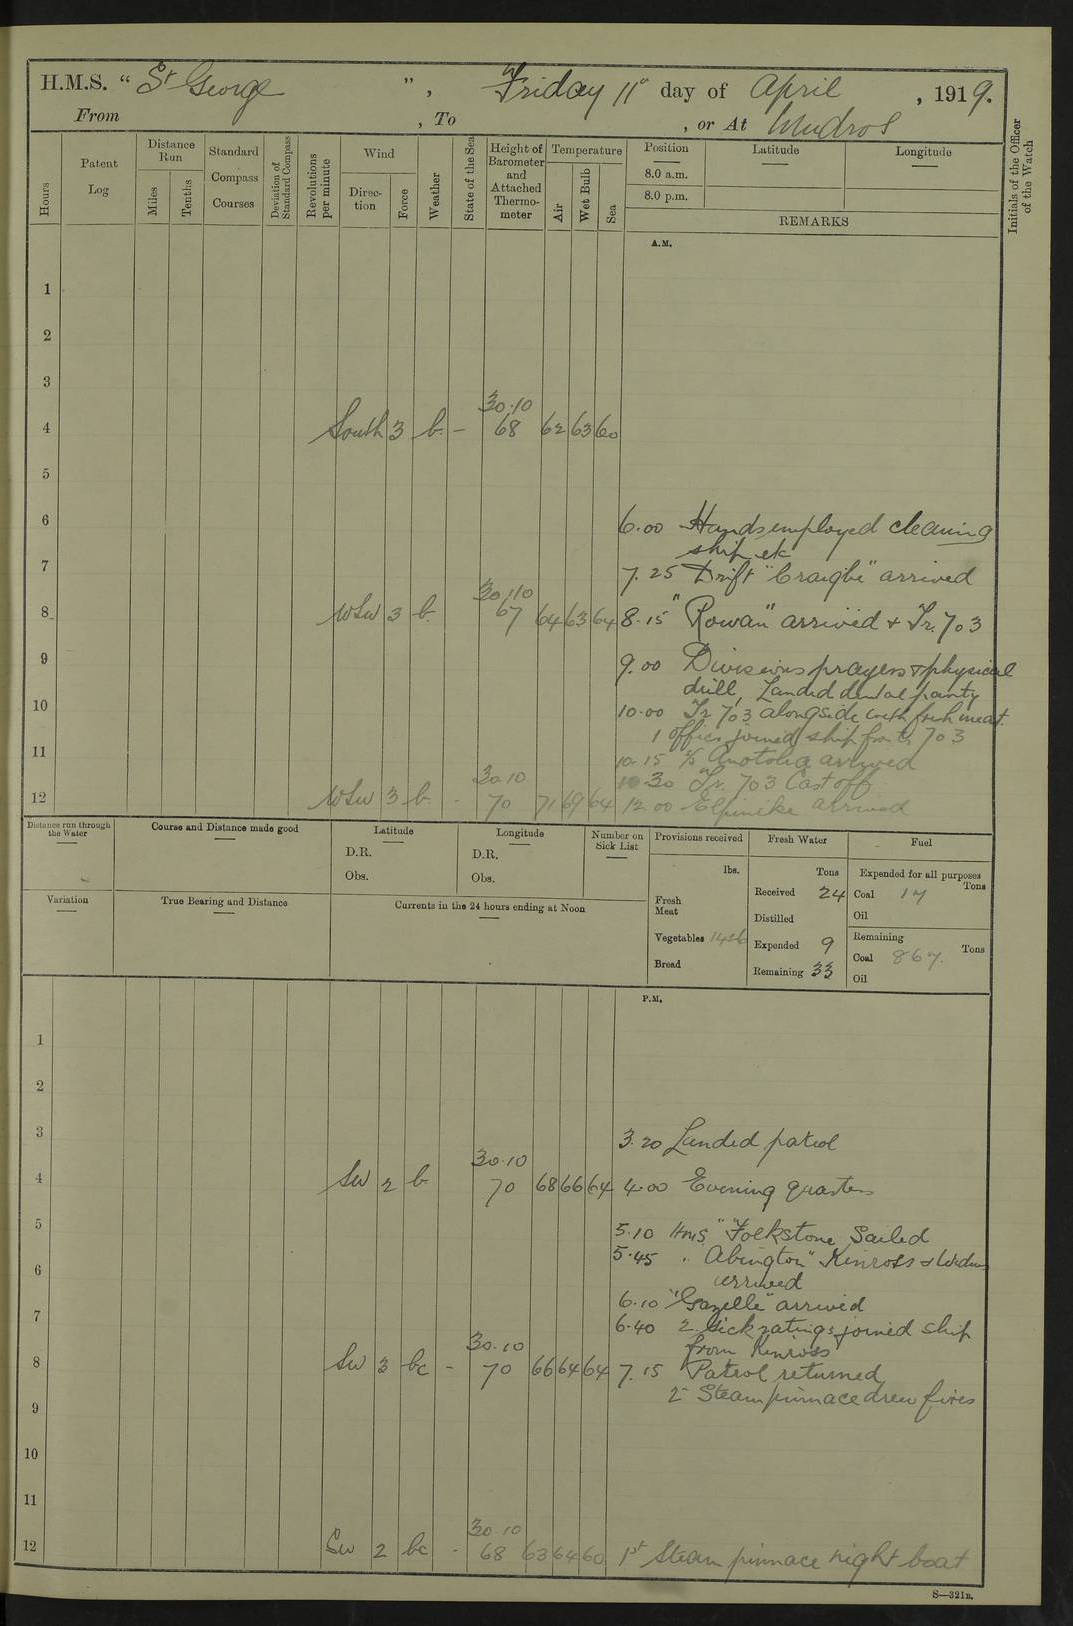 H.M.S. “ St George ” , Friday 11th day of April , 1919.
From , To , or At Mudros
Hours
Patent Log
Distance Run
Miles
Tenths
Standard Compass Courses
Deviation of Standard Compass
Revolutions per minute
Wind
Direction
Force
Weather
State of the Sea
Height of Barometer and Attached Thermometer
Temperature
Air
Wet Bulb
Sea
Position
8.0 a.m.
8.0 p.m.
Latitude
Longitude
REMARKS
Initials of the Officer of the Watch
A.M.
1
2
3
30.10
4 South 3 b. – 68 62 63 60
5
6 6.00 Hands employed cleaning
ship etc
7 7.25 Drift "Craigbe" arrived
30.10
8 WSW 3 b. 67 64 63 64 8.15 "Rowan" arrived & Tr. 703
9 9.00 Divisions prayers & physical
drill, Landed dental party
10 10.00 Tr 703 alongside with fresh meat.
1 officer joined ship from Tr 703
11 10.15 S/S Anatolia arrived
30.10 10.30 Tr. 703 Cast off
12 WSW 3 b. - 70 71 69 64 12.00 Elpinike arrived
Distance run through the Water
Course and Distance made good
Latitude
D.R.
Obs.
Longitude
D.R.
Obs.
Number on Sick List
Provisions received
lbs.
Fresh Meat
Vegetables 1426
Bread
Fresh Water
Tons
Received 24
Distilled
Expended 9
Remaining 33
Fuel
Expended for all purposes
Tons
Coal 17
Oil
Remaining
Tons
Coal 867.
Oil
Variation
True Bearing and Distance
Currents in the 24 hours ending at Noon
P.M.
1
2
3 3.20 Landed patrol
30.10
4 SW 2 b 70 68 66 64 4.00 Evening quarters
5 5.10 HMS "Folkstone Sailed
5.45 " Abington" Kinross &
6 arrived
6.10 "Gazelle" arrived
7 6.40 2 Sick ratings joined ship
30.10 from Kinross
8 SW 3 bc - 70 66 64 64 7.15 Patrol returned
2nd Steam pinnace drew fires
9
10
11
30.10
12 SW 2 bc - 68 63 64 60 1st Steam pinnace night boat
S—321B.